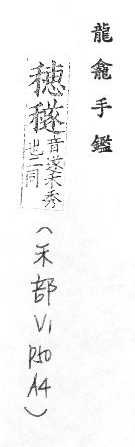 龍龕手鑑
穂穟音遂禾秀也二同
(禾部 V1 P50 A4)